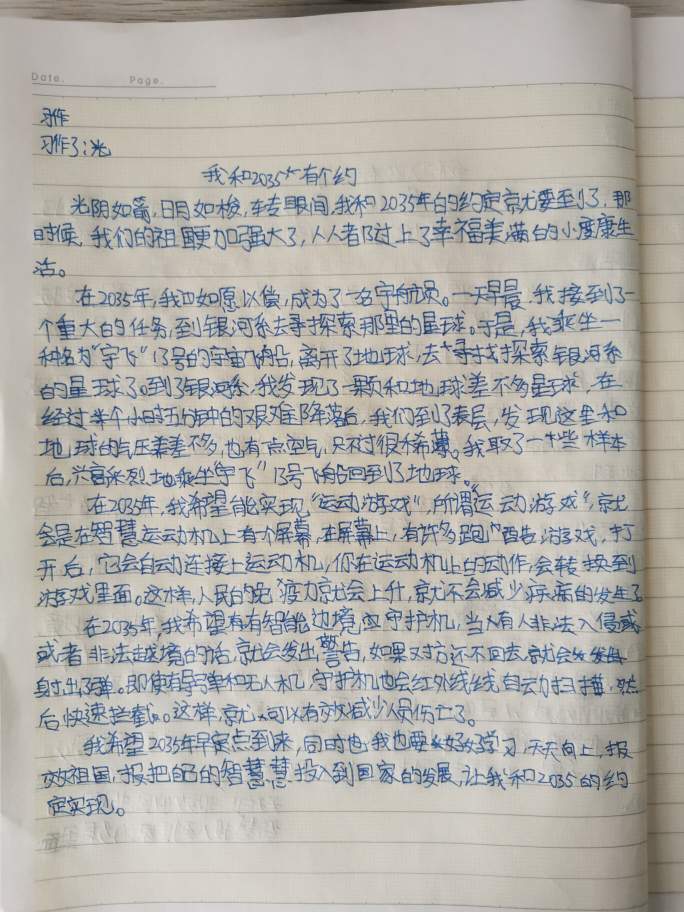 Date.  Page.
习作
习作3:光
我和2035有个约
光阴如箭,日月如梭,转眼间,我和2035年的约定就要到了,那
时候,我们的祖国更加强大了,人人都过上了幸福美满的小康生
活。
在2035年,我也如愿以偿,成为了一名宇航员。一天早晨,我接到了一
个重大的任务,到银河系去寻探索那里的星球。于是,我乘坐一
种名为“宇飞”13号的宇宙飞船,离开了地球,去寻找探索银河系
的星球了。到了银河系,我发现了一颗和地球差不多星球,在
经过半个小时五分钟的艰难降落后,我们到了表层,发现这里和
地球的气压差不多,也有点空气,只不过很稀薄。我取了一些样本
后,兴高采烈地乘坐“宇飞”13号飞船回到了地球。
在2035年,我希望能实现“运动游戏”,所谓“运动游戏”,就
是在智慧运动机上有个屏幕,在屏幕上,有许多跑酷游戏,打
开后,它会自动连接上运动机,你在运动机上的动作,会转换到
游戏里面。这样,人民的免疫力就会上升,就会减少疾病的发生了
在2035年,我希望有智能边境守护机,当有人非法入侵或
或者非法越境的话,就会发出警告,如果对方还不回去,就会发
射出子弹。即使有导弹和无人机,守护机也会红外线线自动扫描,然
后快速拦截。这样,就可以有效减少人员伤亡了。
我希望2035年早点到来,同时也,我也要好好学习,天天向上,报
效祖国,把自己的智慧投入到国家的发展,让我和2035的约
定实现。